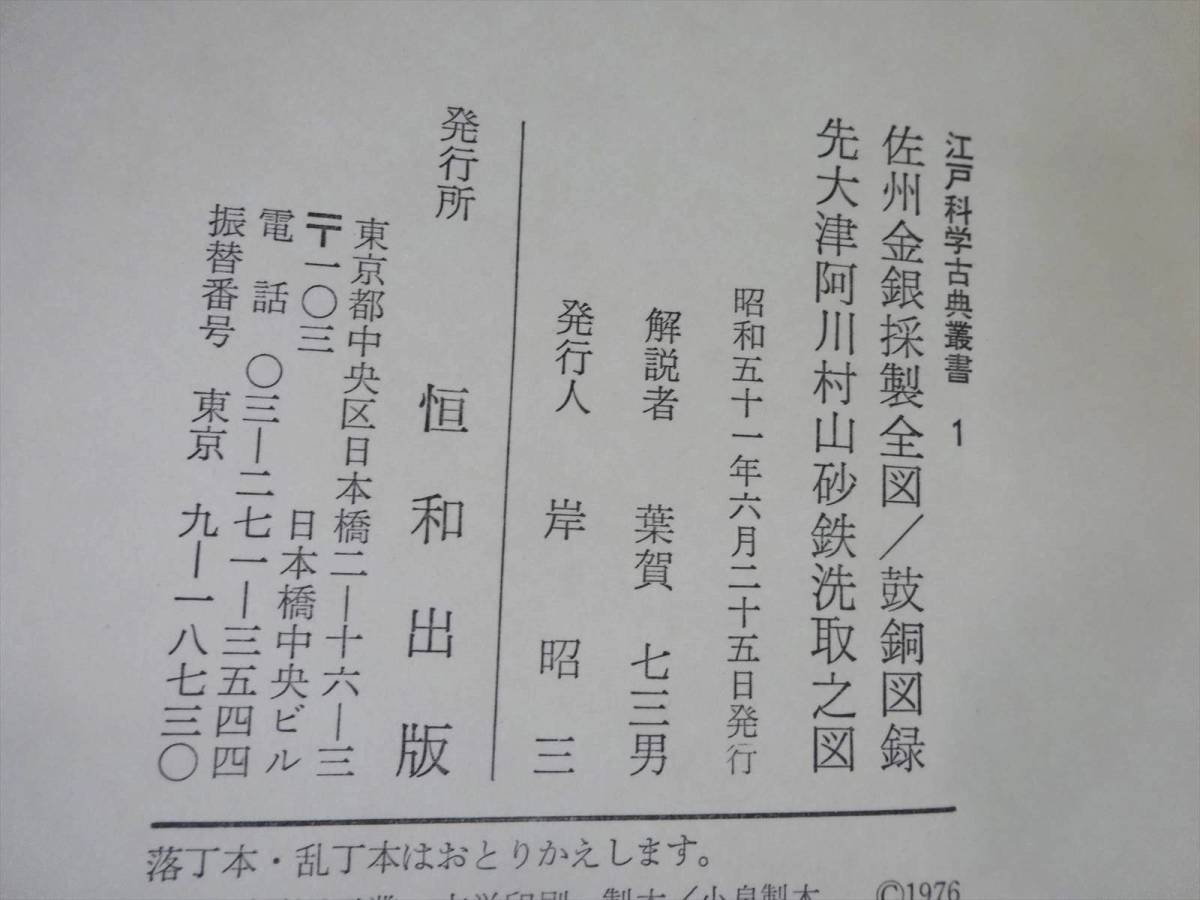 江戸科学古典叢書 1
佐州金銀採製全図／鼓銅図録
先大津阿川村山砂鉄洗取之図
昭和五十一年六月二十五日発行
解説者 葉賀 七三男
発行人 岸 昭 三
発行所 恒和出版
東京都中央区日本橋二―十六―三
〒一〇三 日本橋中央ビル
電話 〇三―二七一―三五四四
振替番号 東京 九―一八七三〇
落丁本・乱丁本はおとりかえします。
印刷 製本／小泉製本 ©1976